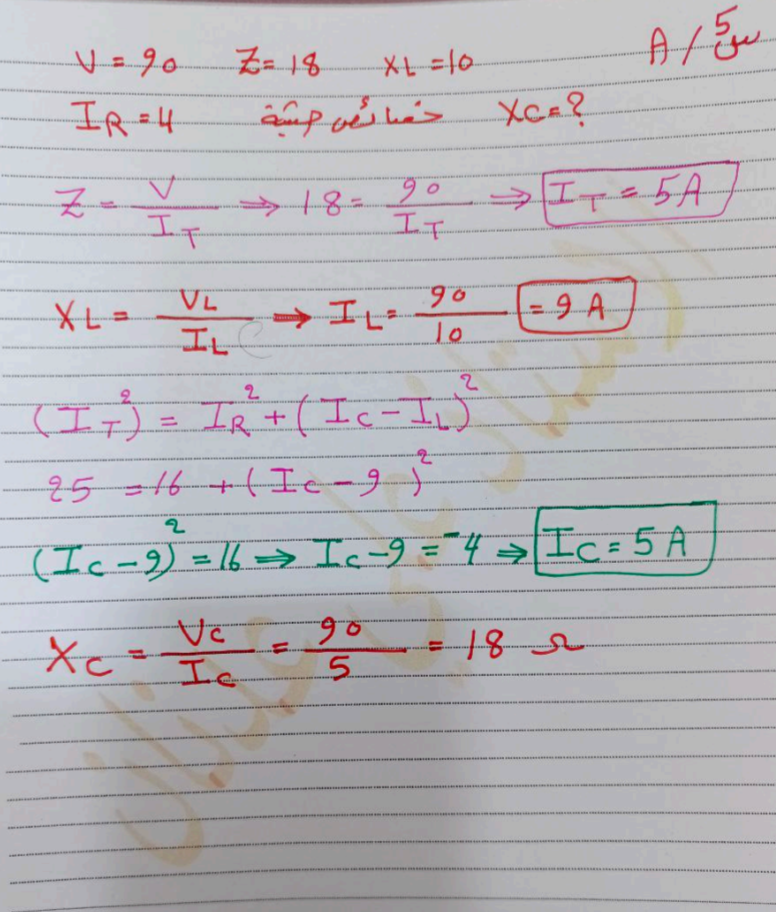 س5 / A
V = 90 Z = 18 XL = 10
IR = 4 خصائص حثية XC = ?
Z = V / IT ⇒ 18 = 90 / IT ⇒ IT = 5A
XL = VL / IL ⇒ IL = 90 / 10 = 9 A
(IT²) = IR² + (IC - IL)²
25 = 16 + (IC - 9)²
(IC - 9)² = 16 ⇒ IC - 9 = -4 ⇒ IC = 5 A
XC = VC / IC = 90 / 5 = 18 Ω